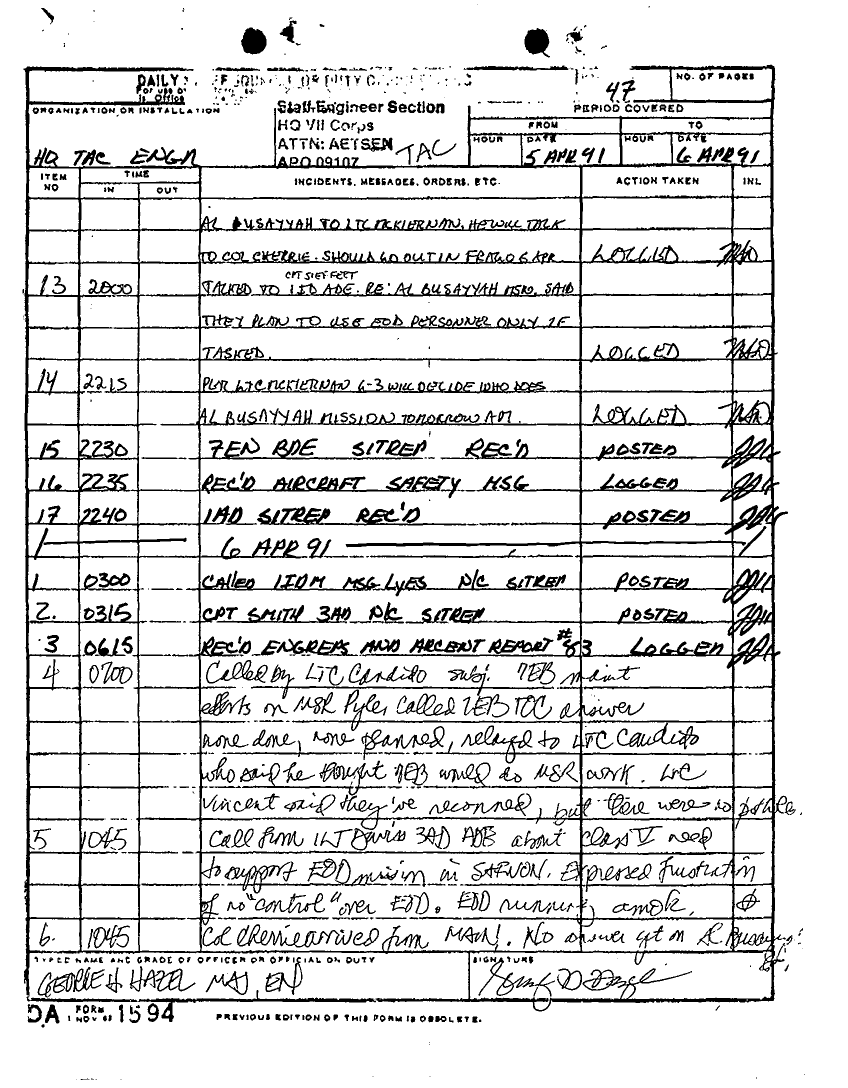 DAILY OR DUTY
For use of
is Office
47
NO. OF PAGES
ORGANIZATION OR INSTALLATION
Staff Engineer Section
HQ VII Corps
ATTN: AETSEN TAC
APO 09107
PERIOD COVERED
FROM TO
HOUR DATE HOUR DATE
HQ TAC ENGR
5 APR 91 6 APR 91
ITEM NO TIME IN OUT INCIDENTS, MESSAGES, ORDERS, ETC. ACTION TAKEN INL
AL BUSAYYAH TO LTC MCKIERNAN. HE WILL TALK
TO COL CHERRIE. SHOULD GO OUT IN FRAGO 6 APR LOGGED
CPT SIEFFERT
13 2000 TALKED TO 1ID ADE. RE: AL BUSAYYAH MSN. SAID
THEY PLAN TO USE EOD PERSONNEL ONLY IF
TASKED. LOGGED
14 2215 PER LTC MCKIERNAN G-3 WILL DECIDE WHO DOES
AL BUSAYYAH MISSION TOMORROW AM. LOGGED
15 2230 7EN BDE SITREP REC'D POSTED
16 2235 REC'D AIRCRAFT SAFETY MSG LOGGED
17 2240 1AD SITREP REC'D POSTED
6 APR 91
1 0300 CALLED 1IDM MSG LYES N/C SITREP POSTED
2. 0315 CPT SMITH 3AD N/C SITREP POSTED
3 0615 REC'D ENGREPS AND ARCENT REPORT #83 LOGGED
4 0700 Called by LTC Candito subj. 7EB maint
efforts on MSR Pyle, called 7EB TOC answer
none done, none planned, relayed to LTC Candito
who said he thought 7EB would do MSR work. LTC
Vincent said they've reconned, but there were no
5 1045 Call from 1LT Davis 3AD ADE about class V need
to support EOD mission in SAFWON. Expressed frustration
of no "control" over EOD. EOD running amok.
6. 1045 Col Cherrie arrived from MAIN. No answer yet on
TYPED NAME AND GRADE OF OFFICER OR OFFICIAL ON DUTY SIGNATURE
GEORGE H HAZEL MAJ, EN
DA FORM 1 NOV 62 1594 PREVIOUS EDITION OF THIS FORM IS OBSOLETE.